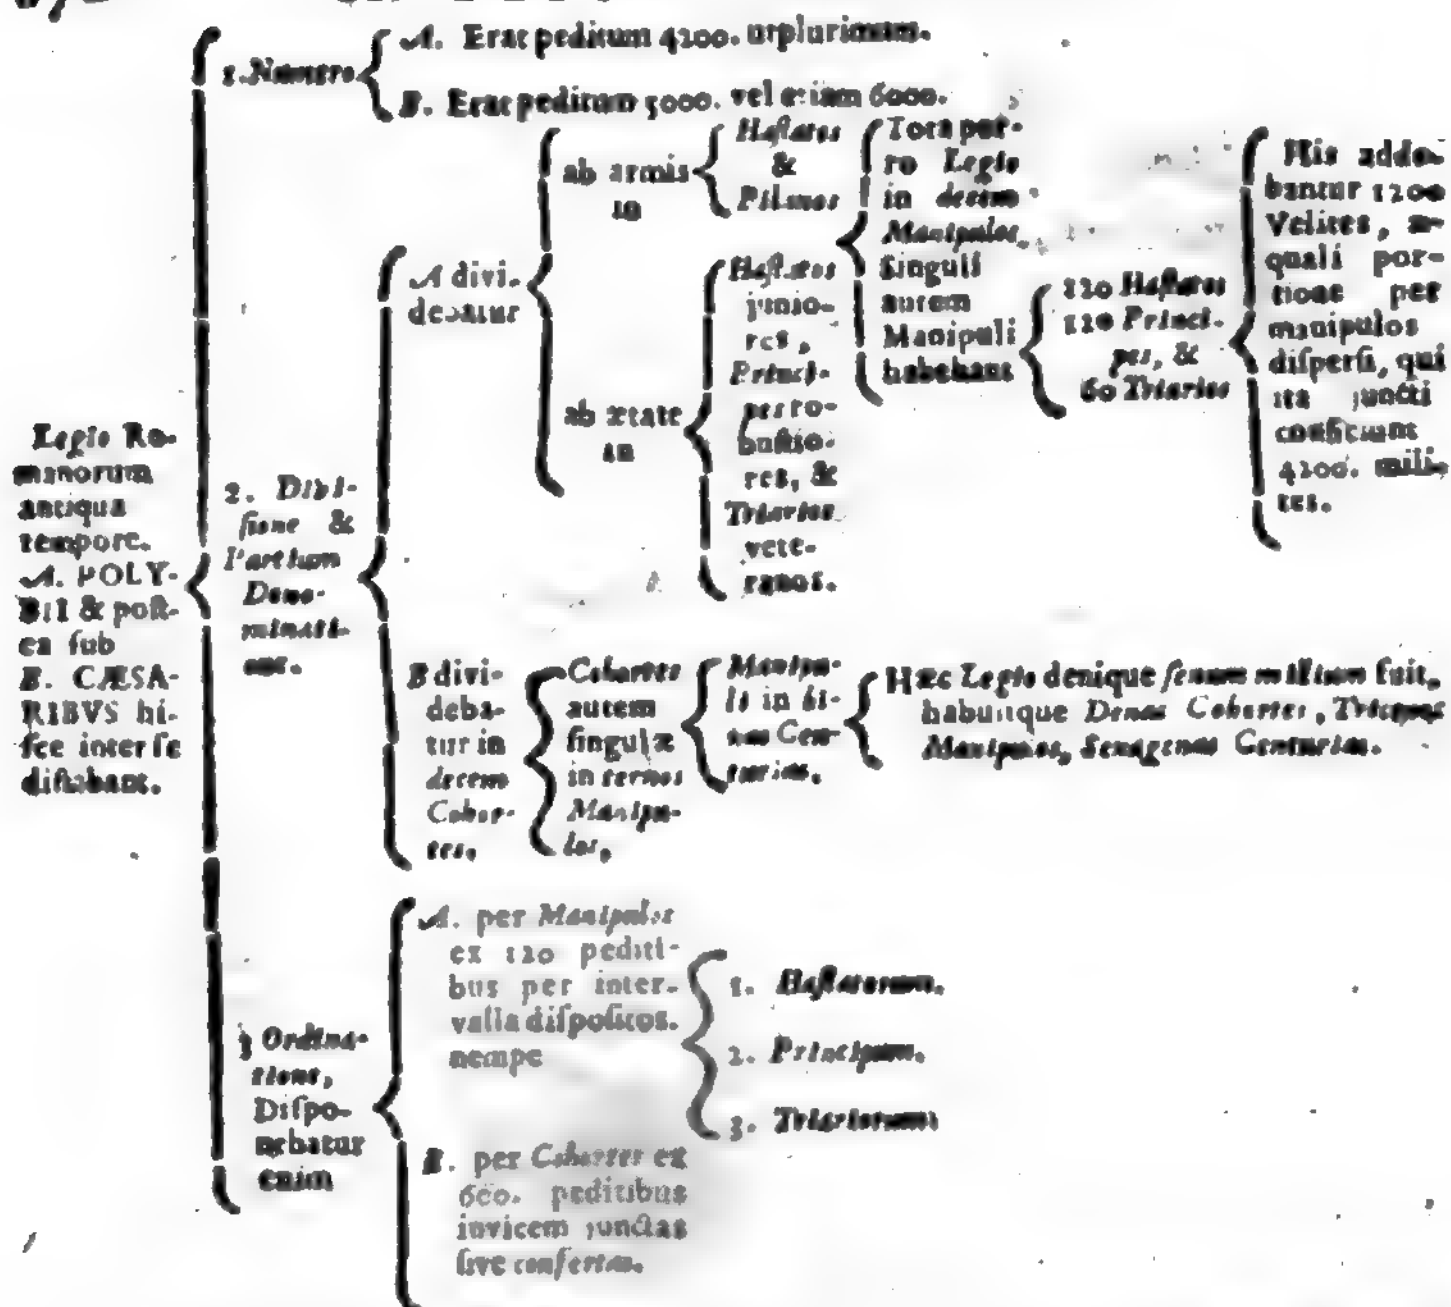 Legio Ro-
manorum
antiqua
tempore.
A. POLY-
BII & poſt-
ea ſub
B. CÆSA-
RIBVS hi-
ſce inter ſe
diſtabant.
1. Numero.
A. Erat peditum 4200. utplurimum.
B. Erat peditum 5000. vel etiam 6000.
2. Divi-
ſione &
Partium
Deno-
minati-
one.
A divi-
debatur
ab armis
in
Haſtatos
&
Pilanos
ab ætate
in
Haſtatos
junio-
res,
Princi-
pes ro-
buſtio-
res, &
Triarios
vete-
ranos.
Tota por-
ro Legio
in decem
Manipulos,
ſinguli
autem
Manipuli
habebant
120 Haſtatos
120 Princi-
pes, &
60 Triarios
His adde-
bantur 1200
Velites, æ-
quali por-
tione per
manipulos
diſperſi, qui
ita juncti
conficiunt
4200. mili-
tes.
B divi-
deba-
tur in
decem
Cohor-
tes,
Cohortes
autem
ſingulæ
in ternos
Manipu-
los,
Manipu-
li in bi-
nas Cen-
turias,
Hæc Legio denique ſenum millium fuit,
habuitque Denas Cohortes, Tricenos
Manipulos, Sexagenas Centurias.
3 Ordina-
tione,
Diſpo-
nebatur
enim
A. per Manipulos
ex 120 pediti-
bus per inter-
valla diſpoſitos.
nempe
1. Haſtatorum.
2. Principum.
3. Triariorum.
B. per Cohortes ex
600. peditibus
invicem junctas
ſive confertas.